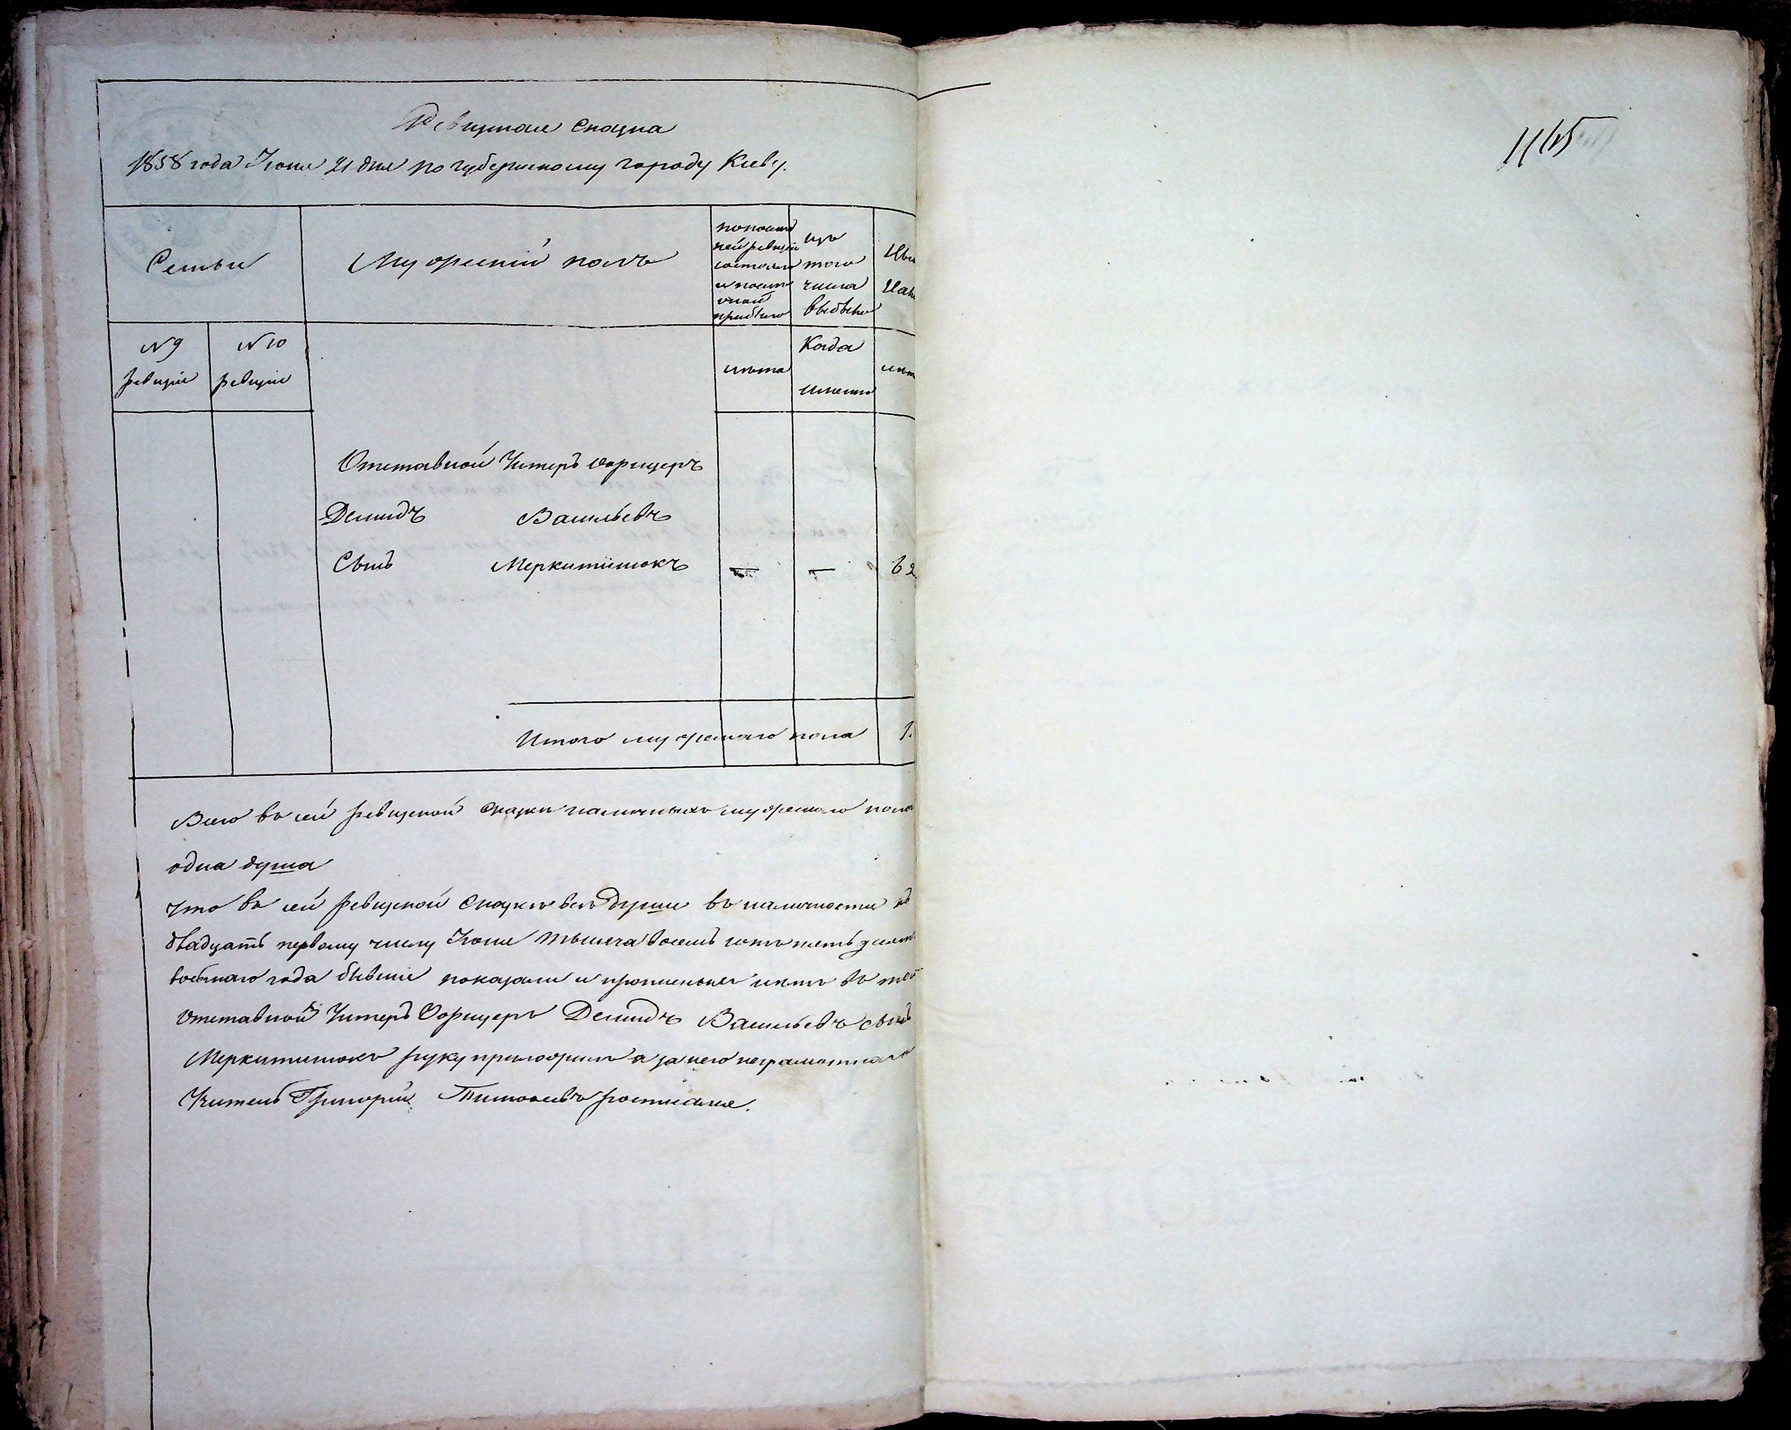 Ревизская Сказка
1858 года Іюня 21 дня по губернскому городу Кіеву.
Семьи
Мужескій полъ
изъ
того
числа
выбыло
№ 9
ревизіи
№ 10
ревизіи
лѣта
Когда
именно
Отставной Унтеръ Офицеръ
Демидъ Васильевъ
Сынъ Меркитинюкъ — — 62
Итого мужескаго пола 1.
Всего въ сей ревизской сказкѣ наличныхъ мужескаго пола
одна душа
Что въ сей ревизской сказкѣ всѣ души въ наличности къ
двадцать первому числу Іюня тысяча восемь сотъ пятьдесятъ
года бывшіе показаны и лѣтъ въ том
Отставной Унтеръ Офицеръ Демидъ Васильевъ сынъ
Меркитинюкъ руку приложилъ а за него неграмотнаго
Учитель Григорій росписался.
1165